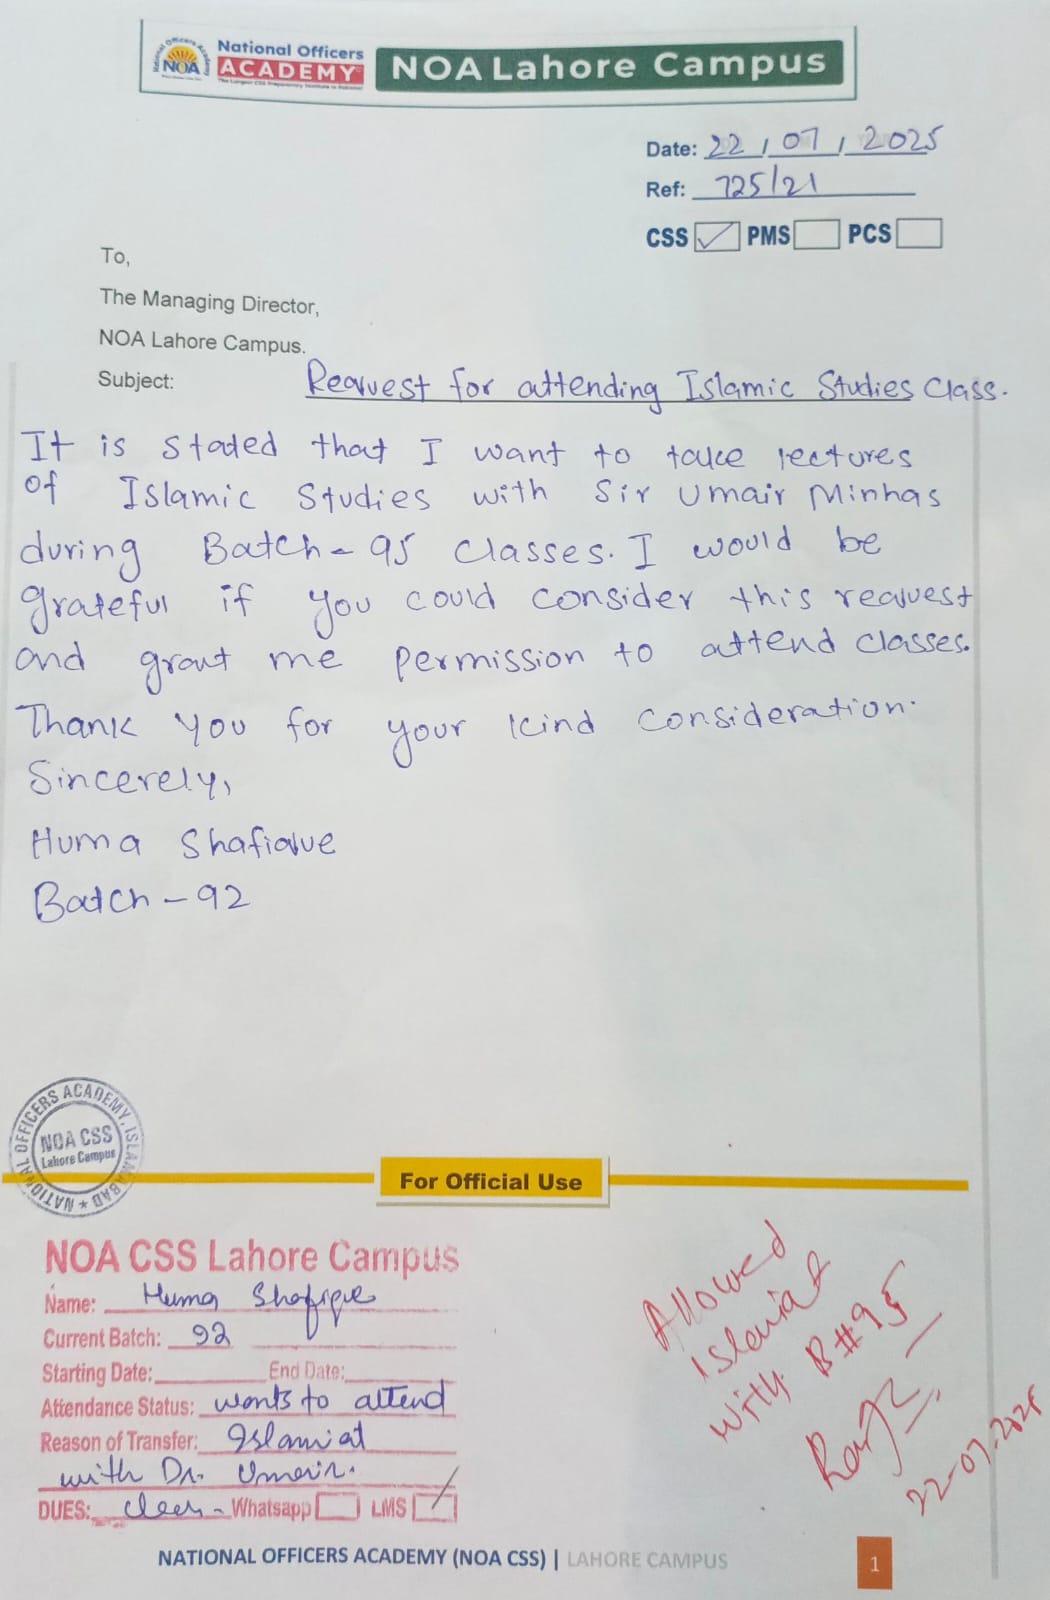 National Officers
ACADEMY
NOA
NOA Lahore Campus
Date: 22 / 07 / 2025
Ref: 725/21
CSS PMS PCS
To,
The Managing Director,
NOA Lahore Campus.
Subject: Request for attending Islamic Studies Class.
It is stated that I want to take lectures
of Islamic Studies with Sir Umair Minhas
during Batch-95 classes. I would be
grateful if you could consider this request
and grant me permission to attend classes.
Thank you for your kind consideration.
Sincerely,
Huma Shafique
Batch-92
NATIONAL OFFICERS ACADEMY, ISLAMABAD
NOA CSS
Lahore Campus
For Official Use
NOA CSS Lahore Campus
Name: Huma Shafique
Current Batch: 92
Starting Date: End Date:
Attendance Status: wants to attend
Reason of Transfer: Islamiat
with Dr. Umair.
DUES: clear Whatsapp LMS
Allowed
islamiat
with B#95
22-07-2025
NATIONAL OFFICERS ACADEMY (NOA CSS) | LAHORE CAMPUS
1